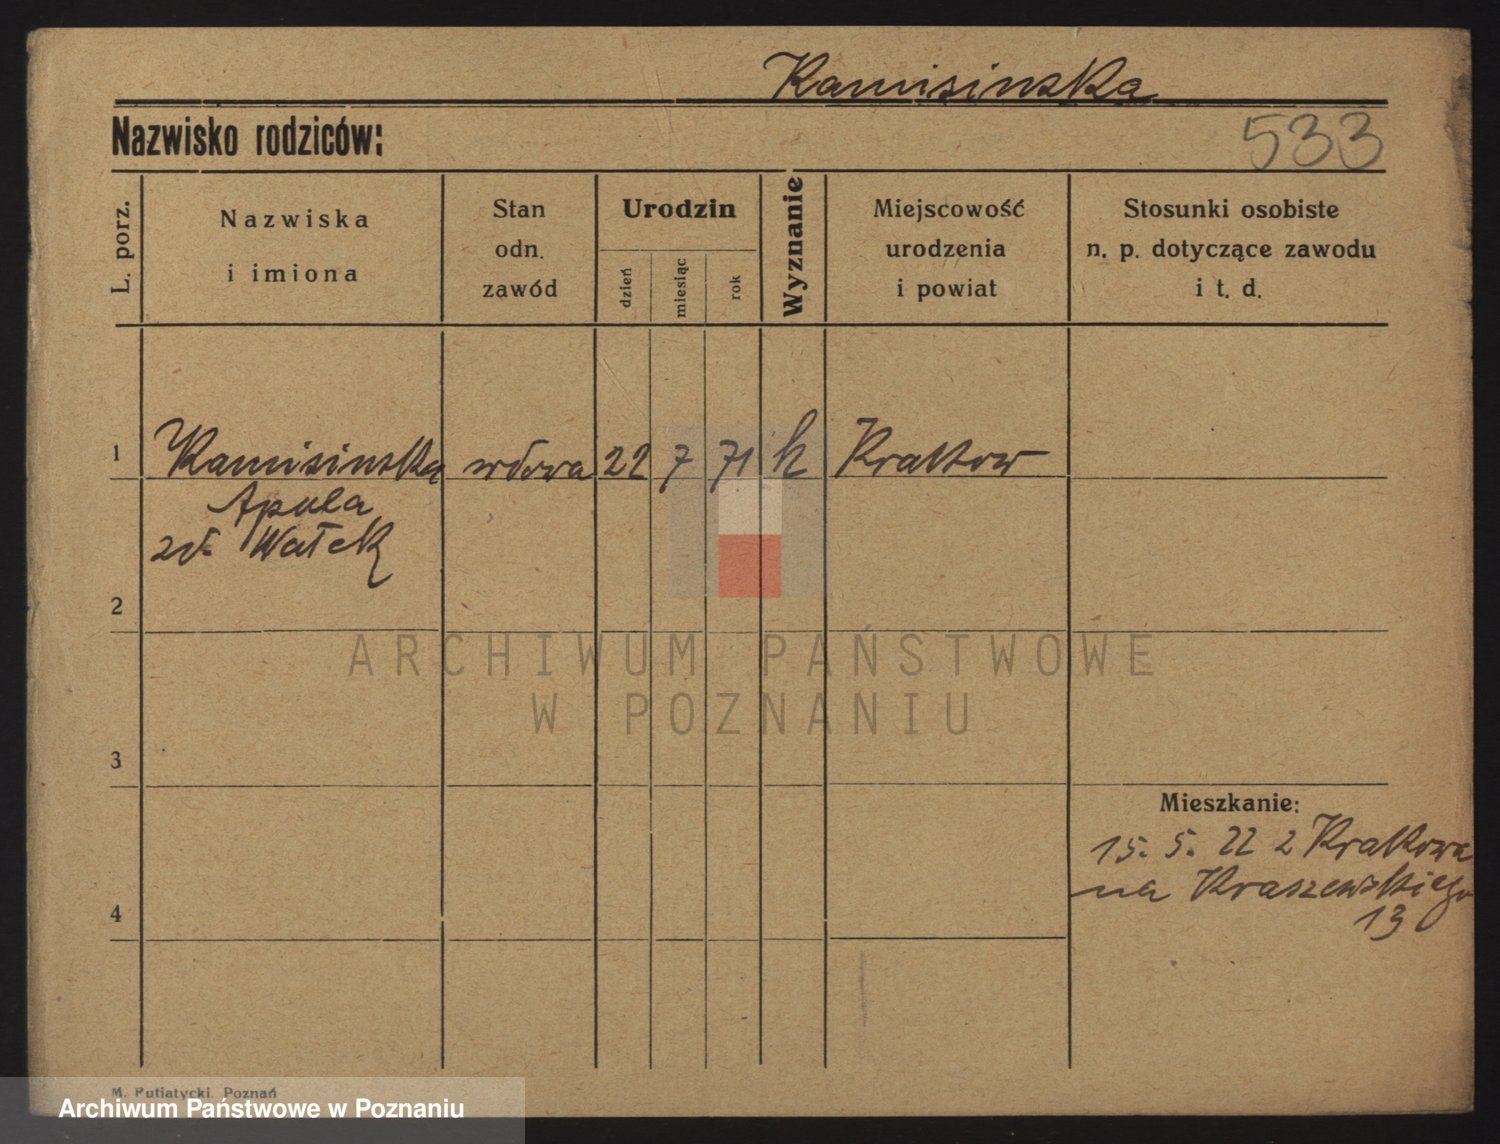 Kamisinska
Nazwisko rodziców:
533
L. porz.
Nazwiska
i imiona
Stan
odn.
zawód
Urodzin
dzień
miesiąc
rok
Wyznanie
Miejscowość
urodzenia
i powiat
Stosunki osobiste
n. p. dotyczące zawodu
i t. d.
1 Kamisinska wdowa 22 7 71 k Krakow
Apula
zd. Wałek
2
ARCHIWUM PAŃSTWOWE
W POZNANIU
3
Mieszkanie:
15. 5. 22 z Krakowa
na Kraszewskiego
13
4
M. Putiatycki, Poznań
Archiwum Państwowe w Poznaniu